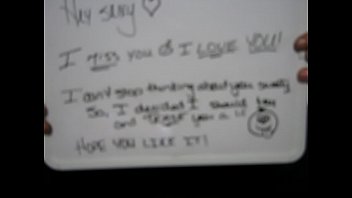 Hey sexy ♡
I miss you & I LOVE YOU!
I can't stop thinking about you
So, I decided I should
and you a
HOPE YOU LIKE IT!